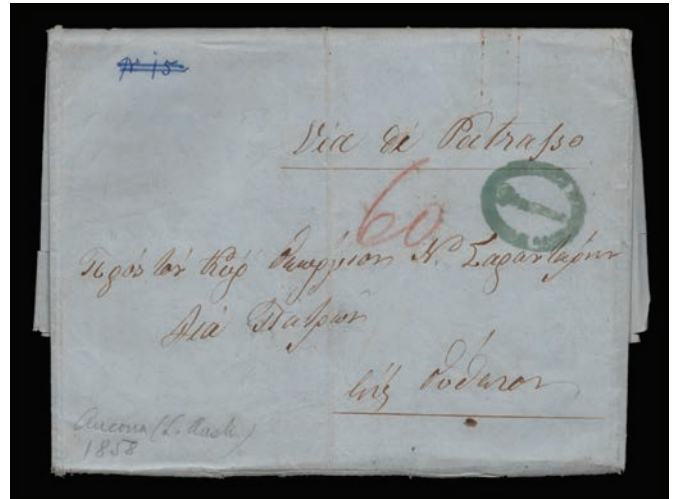 Nº 15
Via di Patrasso
60
Πρὸς τὸν Κύρ Γεώργιον Ν. Σαρανταρην
Διά Πατρῶν
εἰς
Ancona
1858